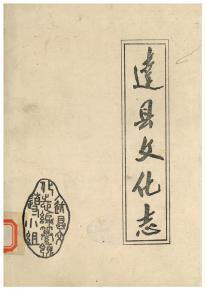 達县文化志
达县文
化志编纂领
导小组